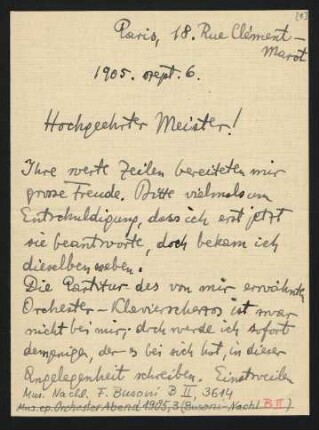 [1]
Paris, 18. Rue Clément-
Marot
1905. sept. 6.
Hochgeehrter Meister!
Ihre werte Zeilen bereiteten mir
grosse Freude. Bitte vielmals um
Entschuldigung, dass ich erst jetzt
sie beantworte, doch bekam ich
dieselben soeben.
Die Partitur des von mir erwähnten
Orchester-Klavierscherzos ist zwar
nicht bei mir; doch werde ich sofort
demjenigen, der es bei sich hat, in dieser
Angelegenheit schreiben. Einstweilen
Mus. Nachl. F. Busoni B II, 3614
Mus.ep. Orchester Abend 1905, 3 (Busoni-Nachl. B II)